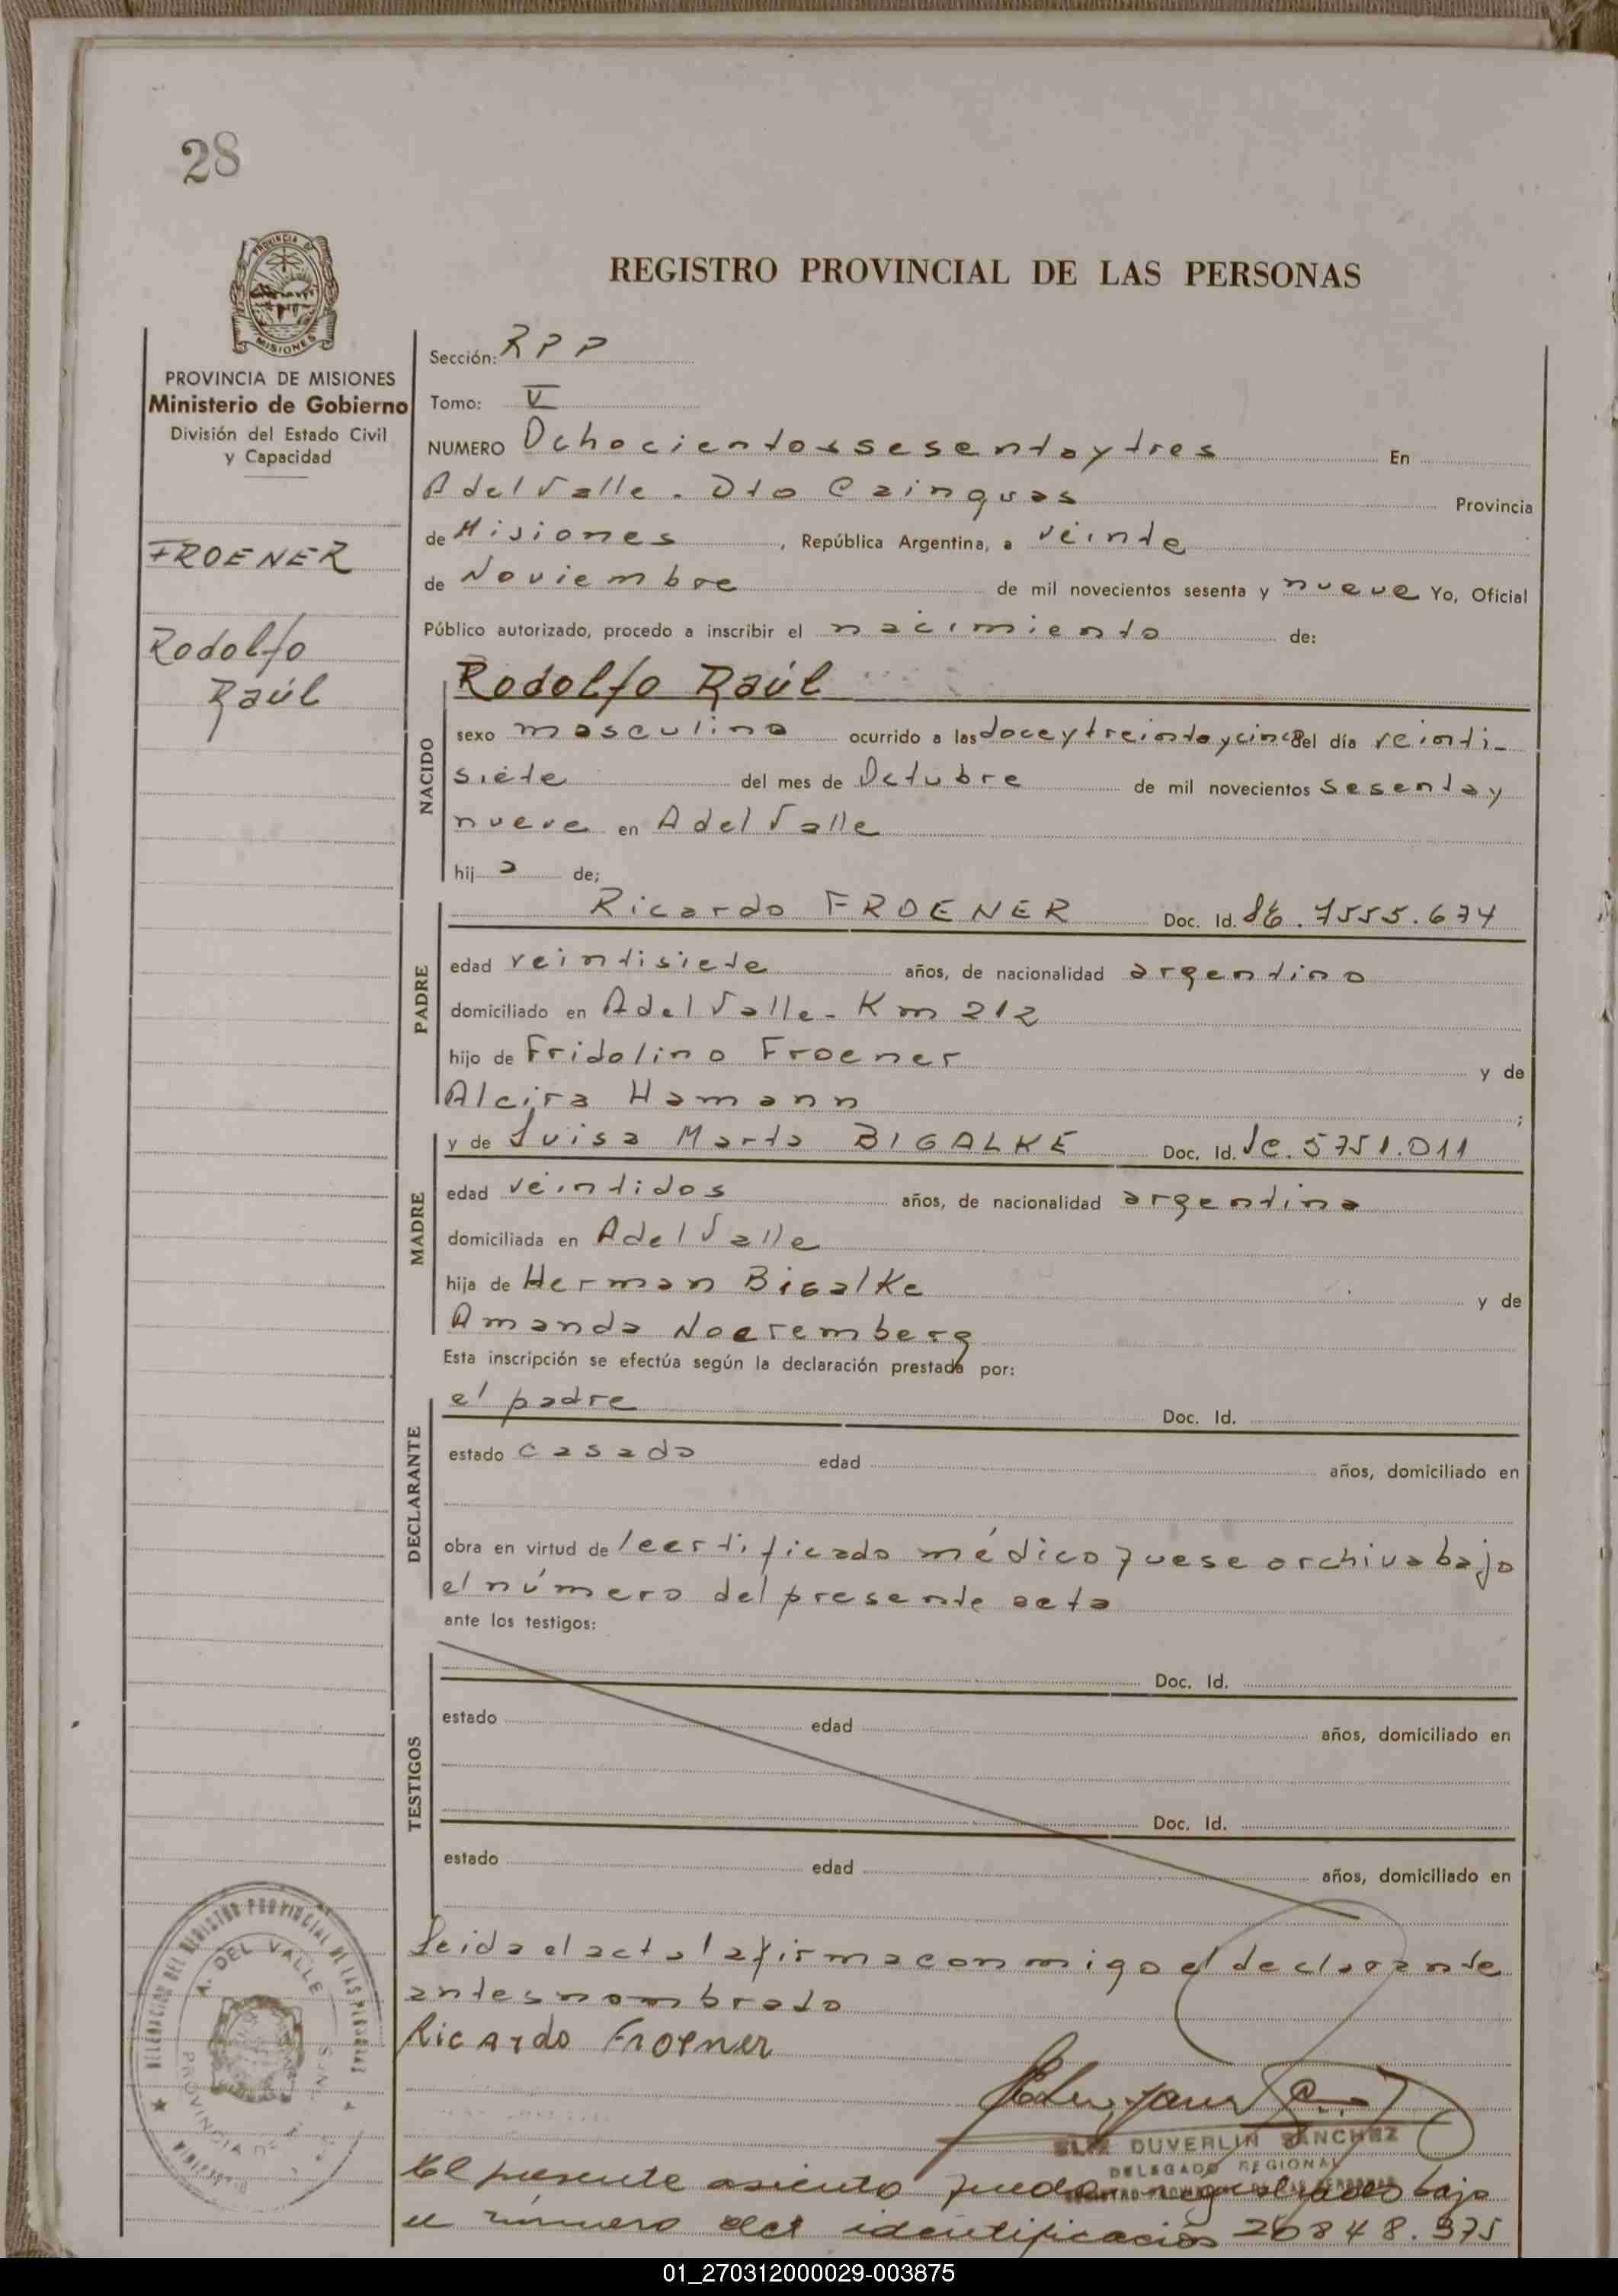 28
PROVINCIA DE
MISIONES
REGISTRO PROVINCIAL DE LAS PERSONAS
PROVINCIA DE MISIONES
Ministerio de Gobierno
División del Estado Civil
y Capacidad
FROENER
Rodolfo
Raúl
Sección: RPP
Tomo: V
NUMERO Ochocientos sesenta y tres En
A del Valle. Dto Cainguas Provincia
de Misiones, República Argentina, a veinte
de Noviembre de mil novecientos sesenta y nueve Yo, Oficial
Público autorizado, procedo a inscribir el nacimiento de:
NACIDO
Rodolfo Raúl
sexo masculino ocurrido a las doce y treinta y cinco del día veinti-
siete del mes de Octubre de mil novecientos sesenta y
nueve en A del Valle
hijo de;
PADRE
Ricardo FROENER Doc. Id. 7555.674
edad veintisiete años, de nacionalidad argentino
domiciliado en A del Valle - Km 212
hijo de Fridolino Froener y de
Alcira Hamann ;
MADRE
y de Luisa Marta BIGALKE Doc. Id. lc. 5751.011
edad veintidos años, de nacionalidad argentina
domiciliada en A del Valle
hija de Herman Bigalke y de
Amanda Noeremberg
Esta inscripción se efectúa según la declaración prestada por:
DECLARANTE
el padre Doc. Id.
estado casado edad años, domiciliado en
obra en virtud de l certificado médico que se archiva bajo
el número del presente acta
ante los testigos:
TESTIGOS
Doc. Id.
estado edad años, domiciliado en
Doc. Id.
estado edad años, domiciliado en
Leida el acta la firma conmigo el declarante
antes nombrado
Ricardo Froener
DELEGACION DEL REGISTRO PROVINCIAL DE LAS PERSONAS
A. DEL VALLE
PROVINCIA DE
DUVERLIN SANCHEZ
DELEGADO REGIONAL
El presente asiento queda registrado bajo
el número de identificación 20848.975
01_270312000029-003875